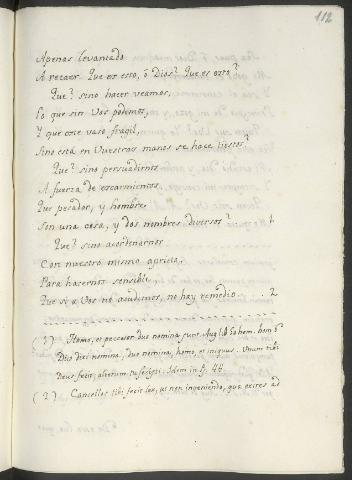 112
Apenas levantado
A recaer. Que es esto, ò Dios? Que es esto?
Que? sino hacer veamos,
Lo que sin Vos podemos,
Y que este vaso fragil,
Sino està en Vuestras manos se hace tiestos?
Que? sino persuadirnos
A fuerza de escarmientos,
Que pecador, y hombre
Son una cosa, y dos nombres diversos? 1
Que? sino acordarnos
Con nuestro mismo aprieto,
Para hacernos sensible,
Que si a Vos no acudimos, no hay remedio . . . 2
(1) Homo, et peccator duo nomina sunt. Aug. hom.
Duo dixi nomina, duo nomina, homo, et iniquus. Unum tibi
Deus fecit; alterum tu fecisti. Idem in Ps. 48.
(2) Cancellos tibi fecit lex, ut non inveniendo, qua exires ad